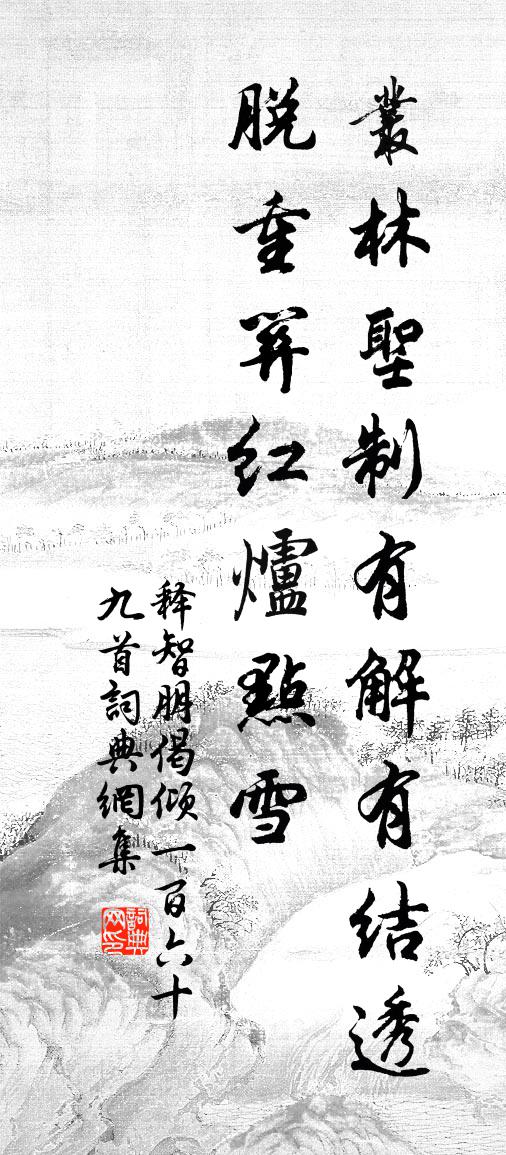 叢林聖制有解有結透
脱重紅爐點雪
释智朋偈倾一百六十
九首詞典網集
詞典
网印